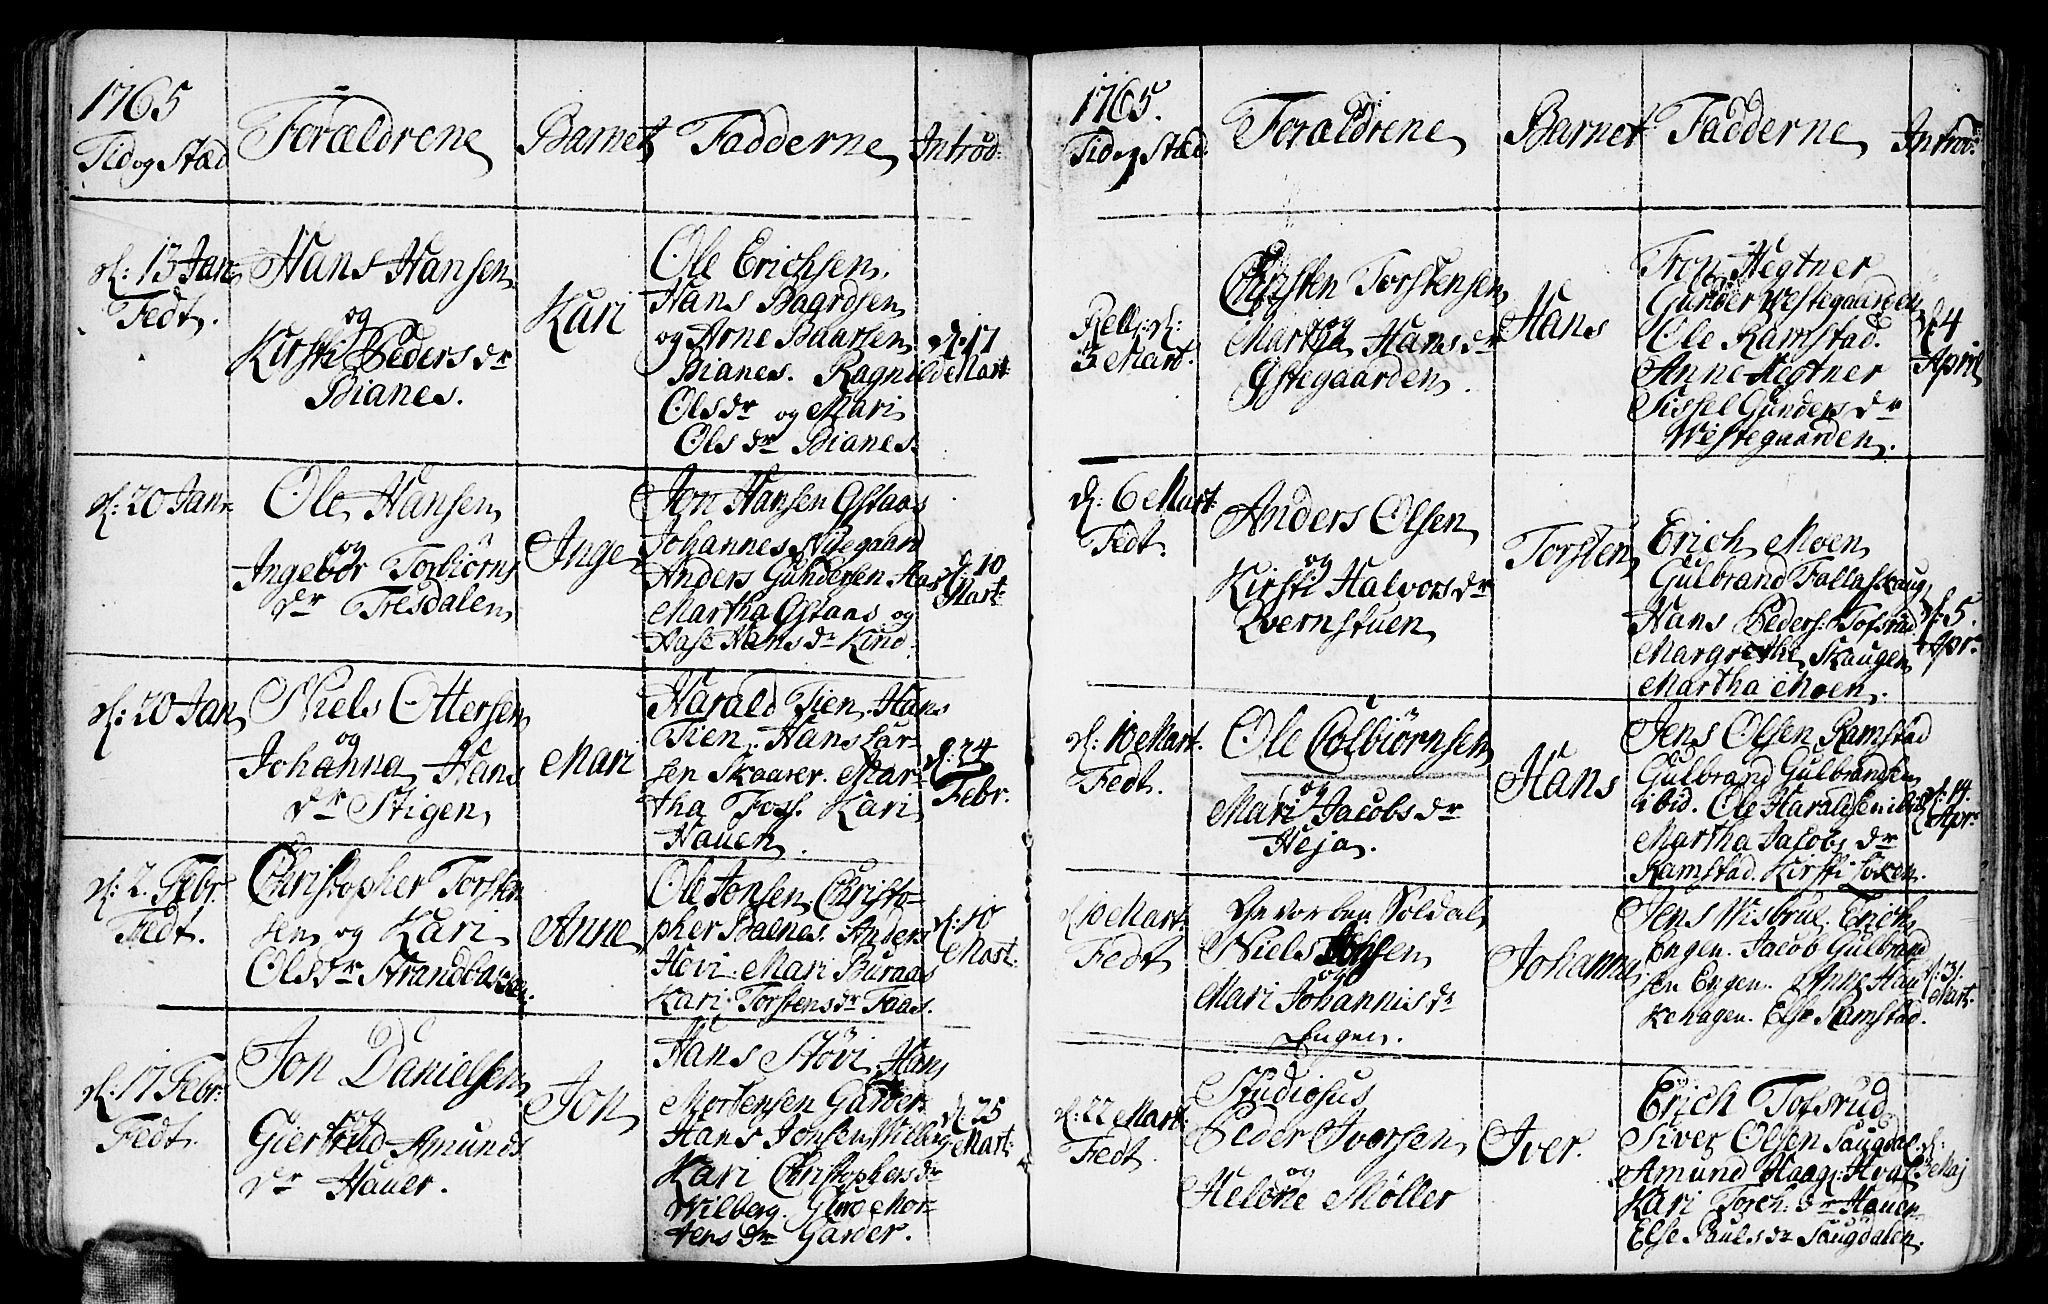 1765
Tid og Stæd
Forældrene
Barnet
Fadderne
Introd:
d: 13 Jan:
Fedt.
Hans Hansen
og
Kirsti Peders dr
Bianes.
Kari
Ole Erichsen.
Hans Baardsen
og Arne Baarsen
Bianes. Ragnild
Olsdr og Mari
Ols dr Bianes.
d. 17
Mart:
d: 20 Janr.
Ole Hansen
og
Ingebor Torbiörns
dr Tresdalen
Inge
Jon Hansen Ostaas
Johannes Nyegaard
Anders Gundersen Aas
Martha Ostaas og
Aase Hans dr Kind.
d. 10
Mart:
d: 20 Jan
Niels Ottersen
og
Johanna Hans
dr Stigen
Mari
Harald Tien. Hans
Tien. Hans Lar-
sen Skaarer. Mar-
tha Foss. Kari
Hauen.
d. 24
Febr.
d: 2. Febr.
Fedt.
Christopher Torsten
sen og Kari
Olsdr Strandbakken
Anne
Ole Jonsen. Christo-
pher Balnes. Anders
Hovi. Mari Buraas
Kari Torstensdr Faas.
d: 10
Mart:
d: 17 Febr:
Fedt.
Jon Danielsen
og
Giertrud Amunds
dr Hauer.
Jon
Hans Hövi. Hans
Mortensen Garder.
Hans Jonsen Wilberg
Kari Christophersdr
Wilberg. Guro Mor-
tens dr Garder.
d. 25
Mart:
1765.
Tid og Stæd.
Forældrene
Barnet
Fadderne
Introd:
Rell: d:
3 Mart.
Christen Torstensen
og
Martha Hans dr
Ostegaarden.
Hans
Tron Hegtner
Gunder Westegaarden
Ole Ramstad.
Anne Hegtner
Sissel Gunders dr
Westegaarden.
d. 4
April
d: 6 Mart
Fedt.
Anders Olsen
og
Kirsti Halvors dr
Qvernstuen
Torsten
Erich Moen
Gulbrand Fallaskaug
Hans Peders: Tofsrud
Margrethe Skaugen
Martha Moen.
d: 5.
Apr:
d: 10 Mart.
Fedt.
Ole Colbiörnsen
og
Mari Jacobs dr
Heja.
Hans
Jens Olsen Ramstad
Gulbrand Gulbrandsen
ibid. Ole Haraldsen ibid.
Martha Jacobs dr
Ramstad. Kirsti Soken.
d: 14.
Apr:
d. 10 Mart.
Fedt
Gevorben Soldat
Niels
og
Mari Johannis dr
Engen.
Johanna
Jens Wisbrue. Erich
Engen. Jacob Gulbrand
sen Engen. Anne Hau
kehagen. Else Ramstad.
d: 31.
Mart:
d: 22 Mart:
Fedt
Studiosus
Peder Iversen
og
Helene Møller
Iver.
Erich Tofsrud
Siver Olsen Saugdal.
Amund Haag. Hval.
Kari Torch. dr Hauen
Else Pauls dr Saugdalen.
d:
3 Maj